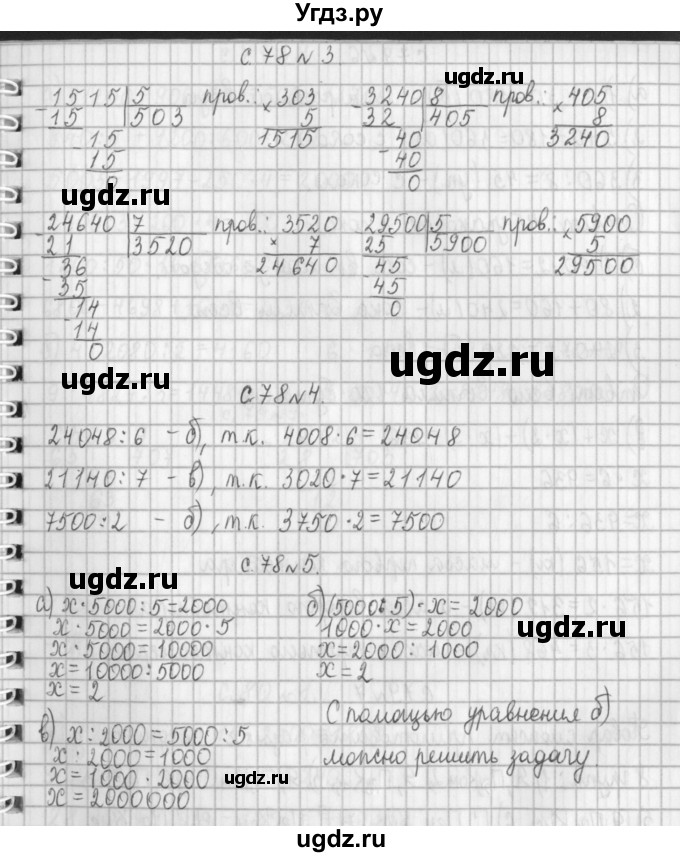 Угдз.ру
с.78 №3.
1515 | 5 пров.: 303 3240 | 8 пров.: 405
- 15 503 × 5 - 32 405 × 8
15 1515 40 3240
- 15 - 40
0 0
ugdz.ru
ugdz.ru
24640 | 7 пров.: 3520 29500 | 5 пров.: 5900
- 21 3520 × 7 - 25 5900 × 5
36 24640 45 29500
- 35 - 45
14 0
- 14
0
ugdz.ru
с.78 №4.
24048 : 6 – б), т.к. 4008 · 6 = 24048
21140 : 7 – в), т.к. 3020 · 7 = 21140
7500 : 2 – б), т.к. 3750 · 2 = 7500
с.78 №5.
ugdz.ru
а) x · 5000 : 5 = 2000 б) (5000 : 5) · x = 2000
x · 5000 = 2000 · 5 1000 · x = 2000
ugdz.ru
x · 5000 = 10000 x = 2000 : 1000
x = 10000 : 5000 x = 2
x = 2
С помощью уравнения б)
в) x : 2000 = 5000 : 5
x : 2000 = 1000 можно решить задачу
x = 1000 · 2000
ugdz.ru
x = 2000000
ugdz.ru